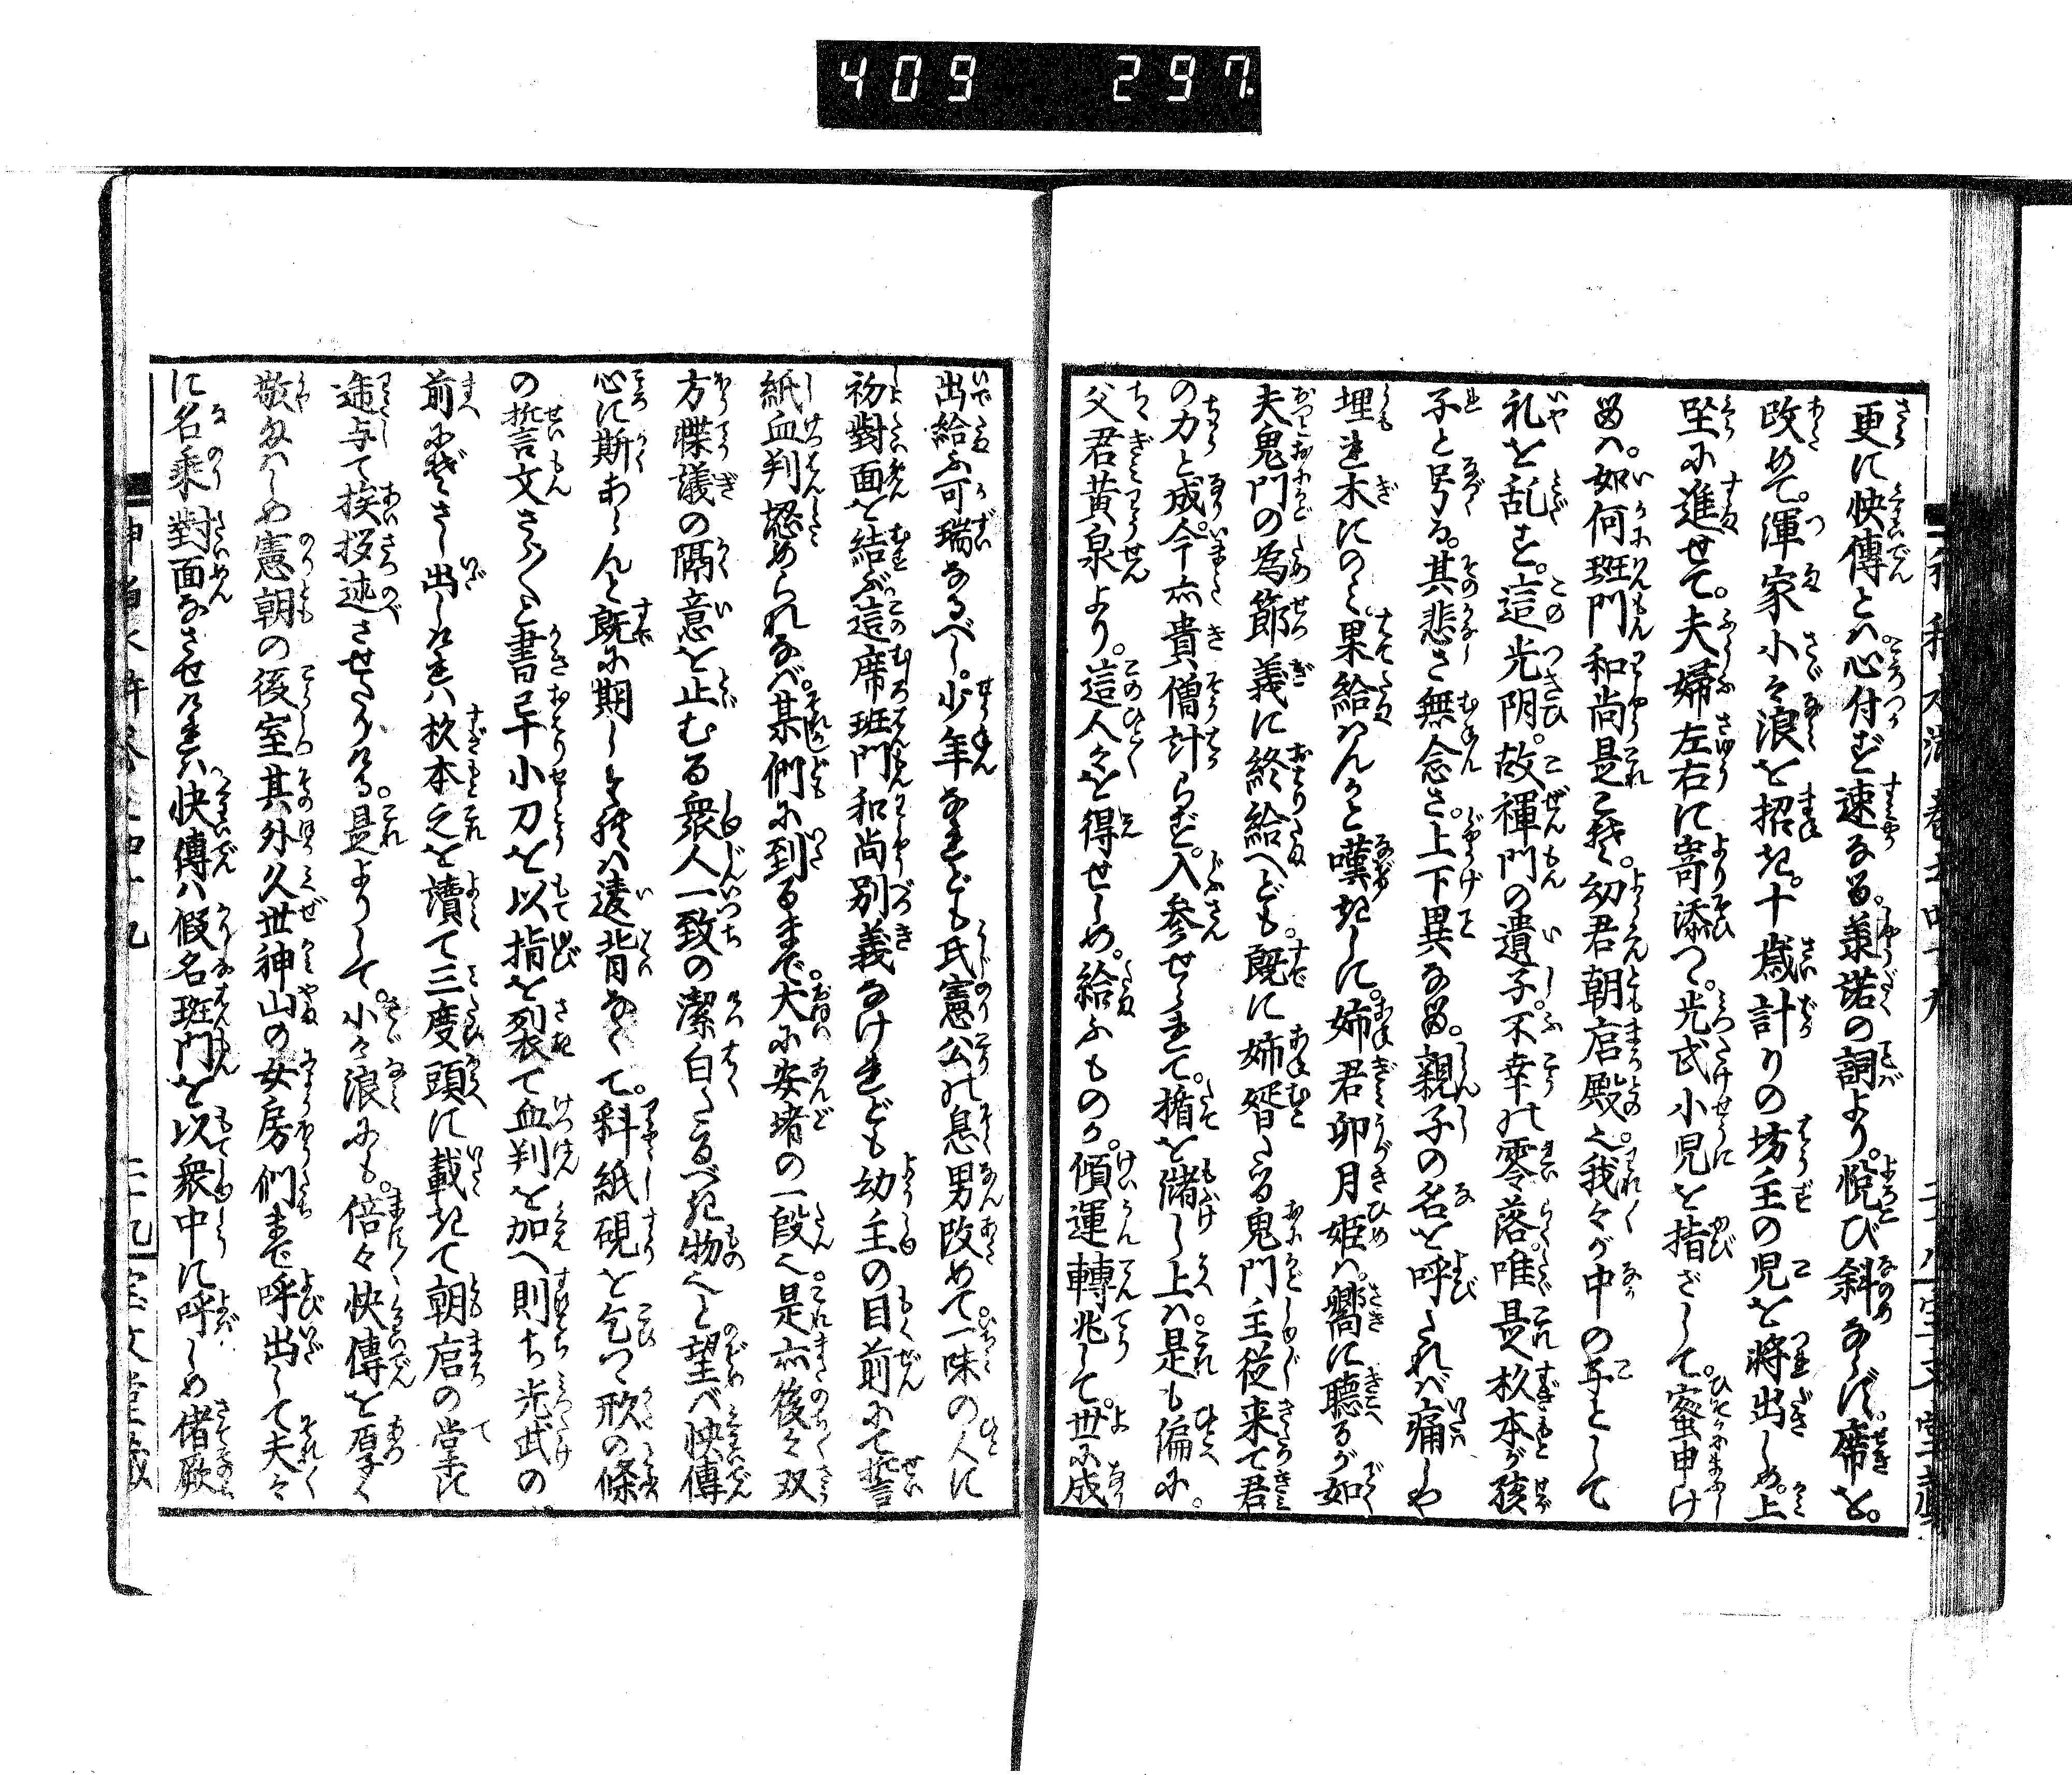 409 297.
更に快傳とハ心付ず速なる羕諾の詞より。悦び斜ならず。席を。
改めて。渾家小々浪を招き。十歳計りの坊主の児を將出しめ。上
坐に進せて。夫婦左右に寄添つ。光武小児を指ざして。密申け
るハ。如何班門和尚是こそ。幼君朝店殿也。我々が中の子として
礼を乱さず。這光阴。故禅門の遺子不幸の零落唯是杦本が孩
子と号る。其悲さ無念さ。上下異なる。親子の名を呼れバ痛しや
埋れ木にのミ。果給はんかと嘆きしに。姉君卯月姫ハ。嚮に聴るが如
夫鬼門の為節義に終給へども。既に姉壻たる鬼門主従来て君
の力と成。今亦貴僧計らず。入参せられて。楯を儲し上ハ是も偏に。
父君黄泉より。這人々を得せしめ。給ふものか。傾運轉兆して。世に成
出給ふ可瑞なるべし。少年なれども氏憲公の息男改めて。一味の人に
初對面を結ぶ這席班門和尚別義なけれども幼主の目前にて誓
紙血判認められなバ。某們に到るまで。大に安堵の一段也。是亦後々双
方喋議の隔意を止むる衆人一致の潔白たるべき物也と望バ快傳
心に斯あらんと既に期しされバ違背なくて。料紙硯を乞つ形の條
の誓文さら〱と書畢小刀を以指を裂て血判を加へ則ち光武の
前にぞさし出しけれハ杦本之を讀て三度頭に載きて朝店の掌に
遞与て挨拶述させたりける。是よりして。小々浪にも。倍々快傳を厚く
敬ハしめ憲朝の後室其外久世神山の女房們まで呼出して夫々
に名乗對面なさせけれハ快傳ハ假名班門を以衆中に呼しめ偖厥